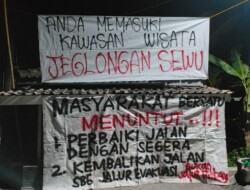 ANDA MEMASUKI
KAWASAN WISATA
JEGLONGAN SEWU
MASYARAKAT BERSATU
MENUNTUT..!!!
1. PERBAIKI JALAN
DENGAN SEGERA
2. KEMBALIKAN JALAN
SBG JALUR EVAKUASI